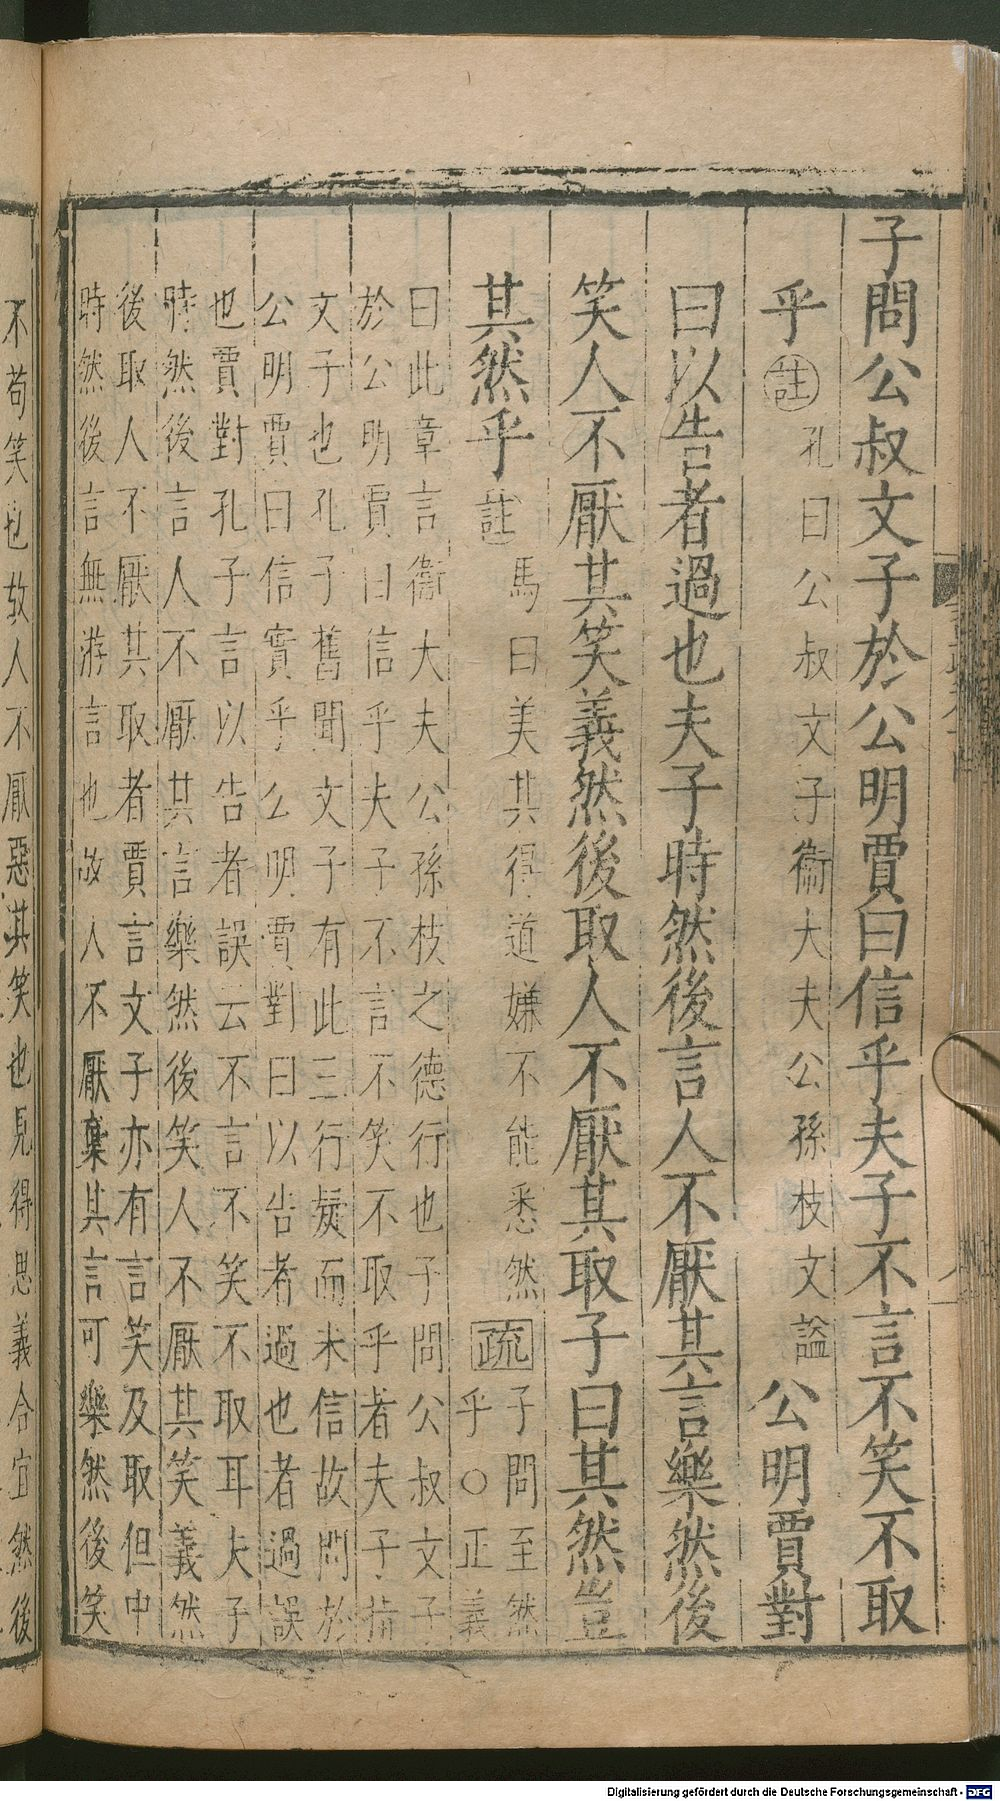 子問公叔文子於公明賈曰信乎夫子不言不笑不取
乎註孔曰公叔文子衞大夫公孫枝文謚公明賈對
曰以告者過也夫子時然後言人不厭其言樂然後
笑人不厭其笑義然後取人不厭其取子曰其然豈
其然乎註馬曰美其得道嫌不能悉然疏子問至然
乎○正義
曰此章言衞大夫公孫枝之德行也子問公叔文子
於公明賈曰信乎夫子不言不笑不取乎者夫子指
文子也孔子舊聞文子有此三行疑而未信故問於
公明賈曰信實乎公明賈對曰以告者過也者過誤
也賈對孔子言以告者誤云不言不笑不取耳夫子
時然後言人不厭其言樂然後笑人不厭其笑義然
後取人不厭其取者賈言文子亦有言笑及取但中
時然後言無游言也故人不厭棄其言可樂然後笑
不苟笑也故人不厭惡其笑也見得思義合宜然後
Digitalisierung gefördert durch die Deutsche Forschungsgemeinschaft - DFG